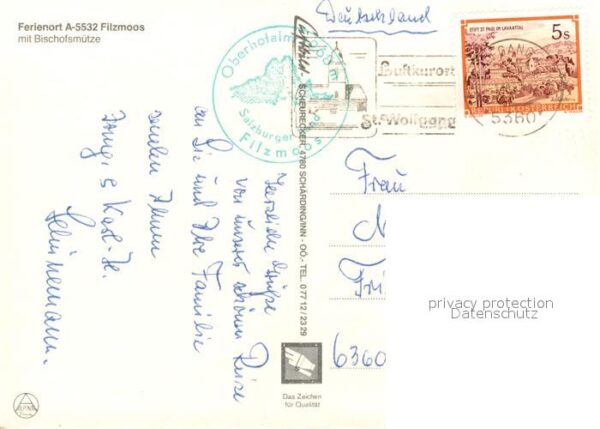 Ferienort A-5532 Filzmoos
mit Bischofsmütze
Oberhofalm 1268 m
Salzburger Land
Filzmoos
Luftbild - SCHEURECKER, 4780 SCHÄRDING/INN - OÖ. - TEL. 0 77 12 / 23 29
Deutschland
Luftkurort
St. Wolfgang
5360
STIFT ST. PAUL IM LAVANTTAL
5 S
REPUBLIK ÖSTERREICH
Herzliche Grüße
von unserer schönen Reise
an Sie und Ihre Familie
senden Ihnen
Karl-H.
Frau
6360
privacy protection
Datenschutz
Das Zeichen
für Qualität